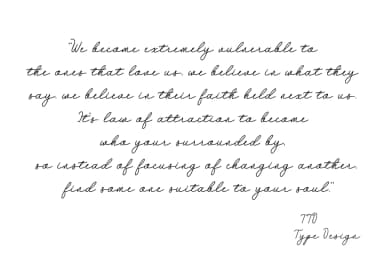 "We become extremely vulnerable to
the ones that love us, we believe in what they
say, we believe in their faith held next to us.
It's law of attraction to become
who your surrounded by,
so instead of focusing of changing another,
find some one suitable to your soul."
TTD
Type Design